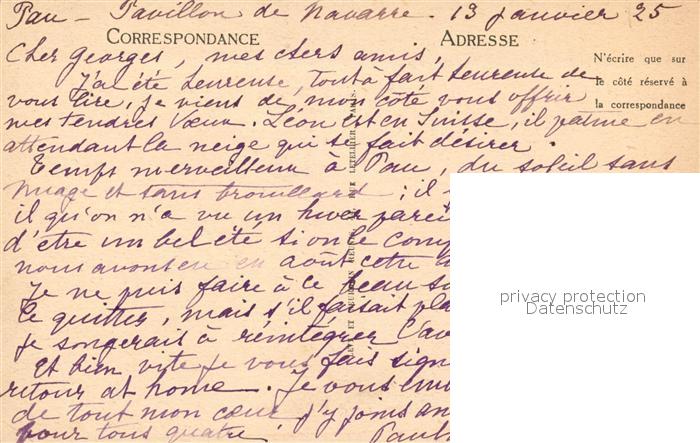 Pau - Pavillon de Navarre. 13 janvier 25
CORRESPONDANCE
ADRESSE
N'écrire que sur
le côté réservé à
la correspondance
Cher Georges, mes chers amis,
J'ai été heureuse, tout à fait heureuse de
vous lire, je viens de mon côté vous offrir
mes tendres Vœux. Léon est en Suisse, il patine en
attendant la neige qui se fait désirer.
Temps merveilleux à Pau, du soleil sans
nuage et sans brouillard ; il
il qu'on n'a vu un hiver pareil
d'être un bel été si on le com
nous avons eu en août cette
Je ne puis faire à ce beau so
le quitter, mais s'il faisait pla
je songerais à réintégrer l'av
Et bien vite je vous fais sign
retour at home. Je vous em
de tout mon cœur j'y joins an
pour tous quatre.
Paul
privacy protection
Datenschutz